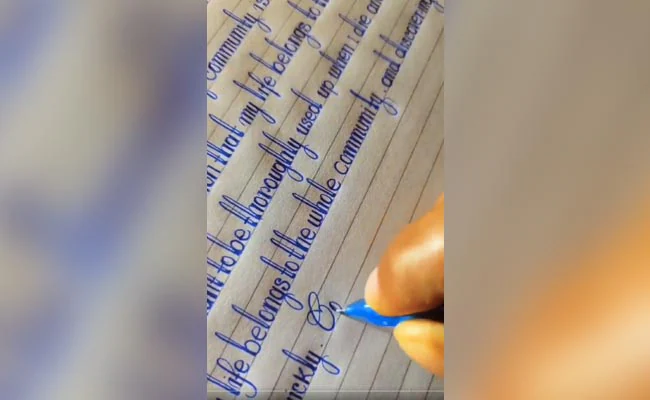 community is
that my life belongs to
to be thoroughly used up when I die and
life belongs to the whole community, and discovering
ickly.